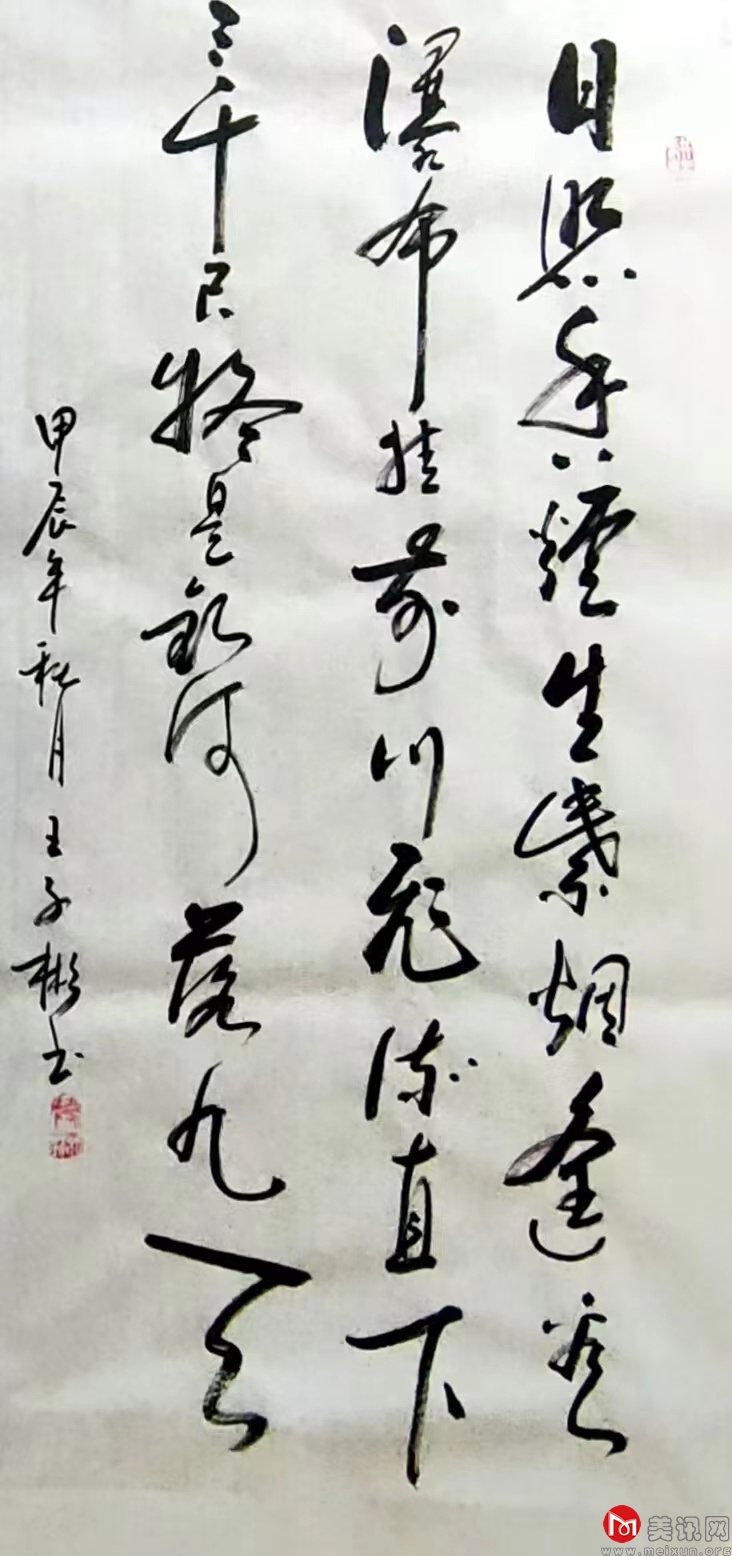 日照香爐生紫烟遥看
瀑布挂前川飛流直下
三千尺疑是銀河落九天
甲辰年秋月王子彬书
美讯网
www.meixun.org